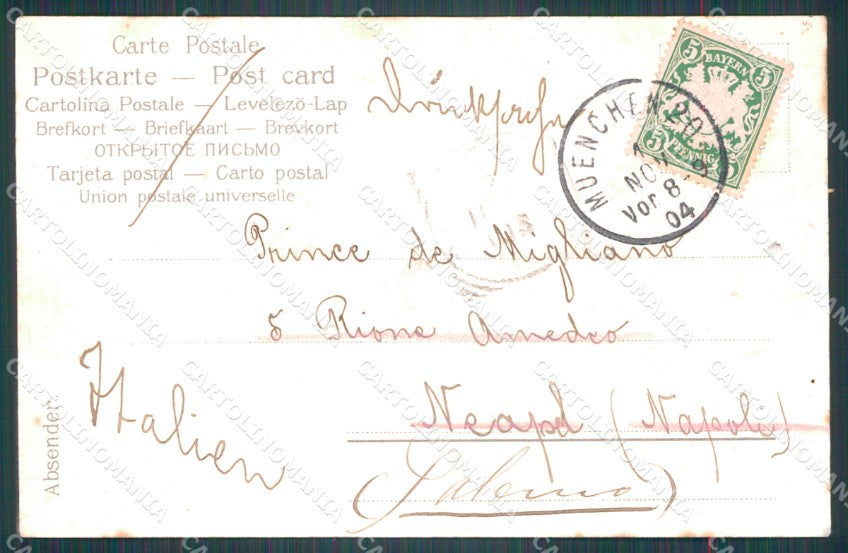 Carte Postale
Postkarte — Post card
Cartolina Postale — Levelező-Lap
Brefkort — Briefkaart — Brevkort
ОТКРЫТОЕ ПИСЬМО
Tarjeta postal — Carto postal
Union postale universelle
BAYERN
5 5
5 PFENNIG 5
MUENCHEN 20
1
NOV
Vor 8
04
Prince de Migliano
5 Rione Amedeo
Neapel (Napoli)
(Salerno)
Italien
Absender:
CARTOLINOMANIA